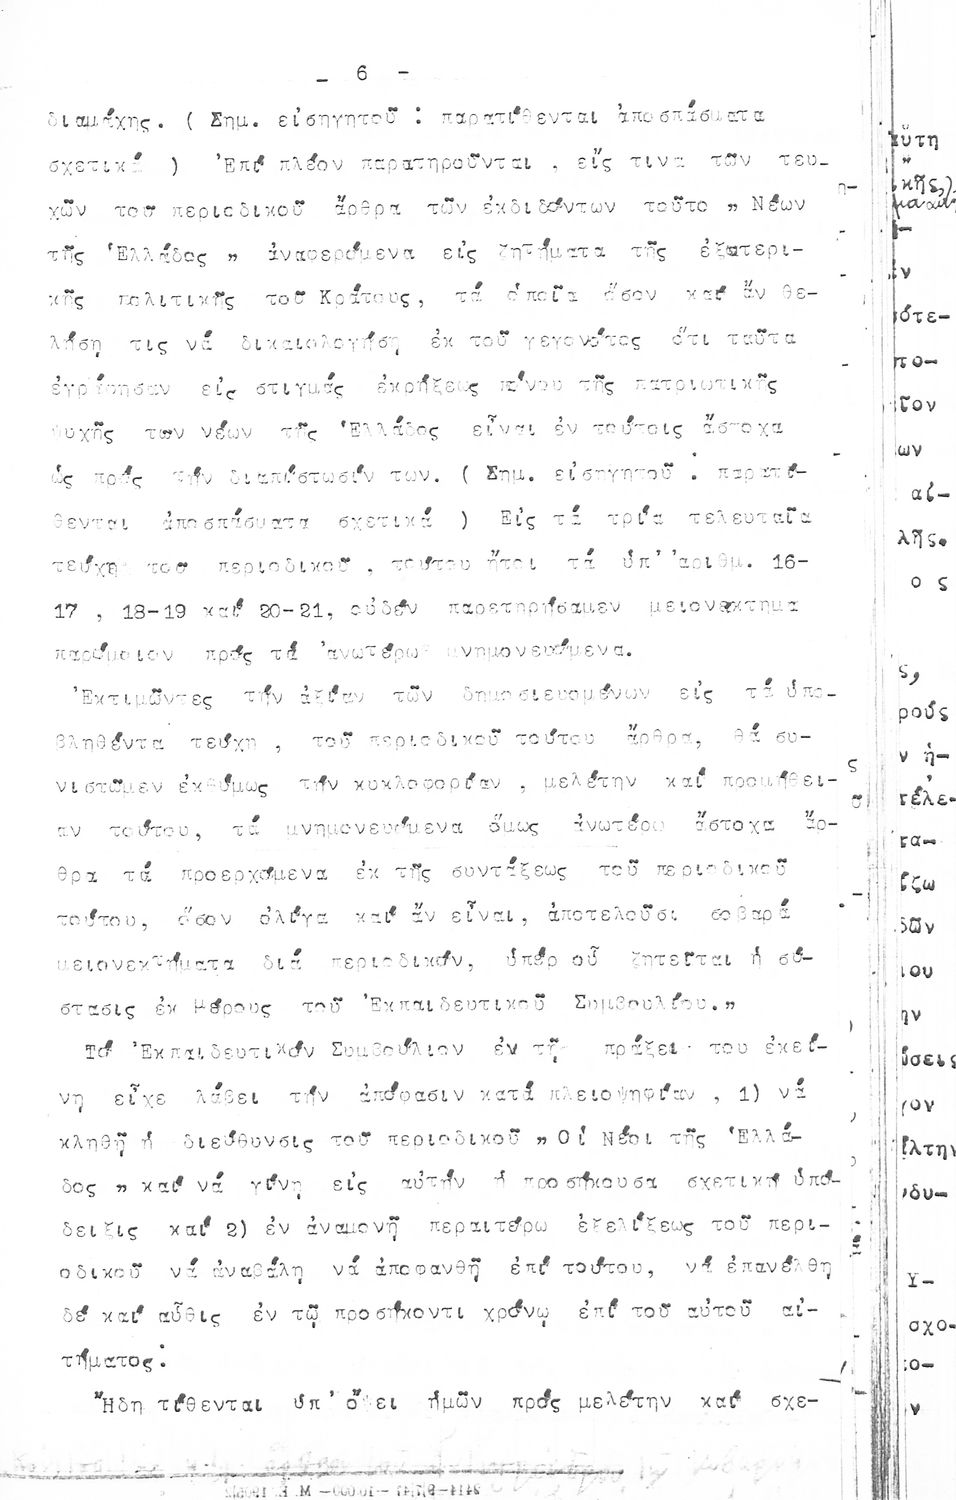 _ 6 -
διαμάχης. ( Σημ. εἰσηγητοῦ : παρατίθενται ἀποσπάσματα
σχετικά ) Ἐπί πλέον παρατηροῦνται , εἴς τινα τῶν τευ-
χῶν τοῦ περιοδικοῦ ἄρθρα τῶν ἐκδιδόντων τοῦτο „ Νέων
τῆς Ἑλλάδος „ ἀναφερόμενα εἰς ζητήματα τῆς ἐξωτερι-
κῆς πολιτικῆς τοῦ Κράτους, τά ὁποῖα ὅσον καί ἄν θε-
λήσῃ τις νά δικαιολογήσῃ ἐκ τοῦ γεγονότος ὅτι ταῦτα
ἐγράφησαν εἰς στιγμάς ἐκρήξεως πόνου τῆς πατριωτικῆς
ψυχῆς τῶν νέων τῆς Ἑλλάδος εἶναι ἐν τούτοις ἄστοχα
ὡς πρός τήν διαπίστωσίν των. ( Σημ. εἰσηγητοῦ : παρατί-
θενται ἀποσπάσματα σχετικά ) Εἰς τά τρία τελευταῖα
τεύχη τοῦ περιοδικοῦ , τούτου ἤτοι τά ὑπ' ἀριθμ. 16-
17 , 18-19 καί 20-21, οὐδέν παρετηρήσαμεν μειονέκτημα
παρόμοιον πρός τά ἀνωτέρω μνημονευόμενα.
Ἐκτιμῶντες τήν ἀξίαν τῶν δημοσιευομένων εἰς τά ὑπο-
βληθέντα τεύχη , τοῦ περιοδικοῦ τούτου ἄρθρα, θά συ-
νιστῶμεν ἐκθύμως τήν κυκλοφορίαν , μελέτην καί προμήθει-
αν τούτου, τά μνημονευόμενα ὅμως ἀνωτέρω ἄστοχα ἄρ-
θρα τά προερχόμενα ἐκ τῆς συντάξεως τοῦ περιοδικοῦ
τούτου, ὅσον ὀλίγα καί ἄν εἶναι, ἀποτελοῦσι σοβαρά
μειονεκτήματα διά περιοδικόν, ὑπέρ οὗ ζητεῖται ἡ σύ-
στασις ἐκ μέρους τοῦ Ἐκπαιδευτικοῦ Συμβουλίου.„
Τό Ἐκπαιδευτικόν Συμβούλιον ἐν τῇ πράξει του ἐκεί-
νῃ εἶχε λάβει τήν ἀπόφασιν κατά πλειοψηφίαν , 1) νά
κληθῇ ἡ διεύθυνσις τοῦ περιοδικοῦ „ Οἱ Νέοι τῆς Ἑλλά-
δος „ καί νά γίνῃ εἰς αὐτήν ἡ προσήκουσα σχετική ὑπό-
δειξις καί 2) ἐν ἀναμονῇ περαιτέρω ἐξελίξεως τοῦ περι-
οδικοῦ νά ἀναβάλῃ νά ἀποφανθῇ ἐπί τούτου, νά ἐπανέλθῃ
δέ καί αὖθις ἐν τῷ προσήκοντι χρόνῳ ἐπί τοῦ αὐτοῦ αἰ-
τήματος.
Ἤδη τίθενται ὑπ' ὄψει ἡμῶν πρός μελέτην καί σχε-